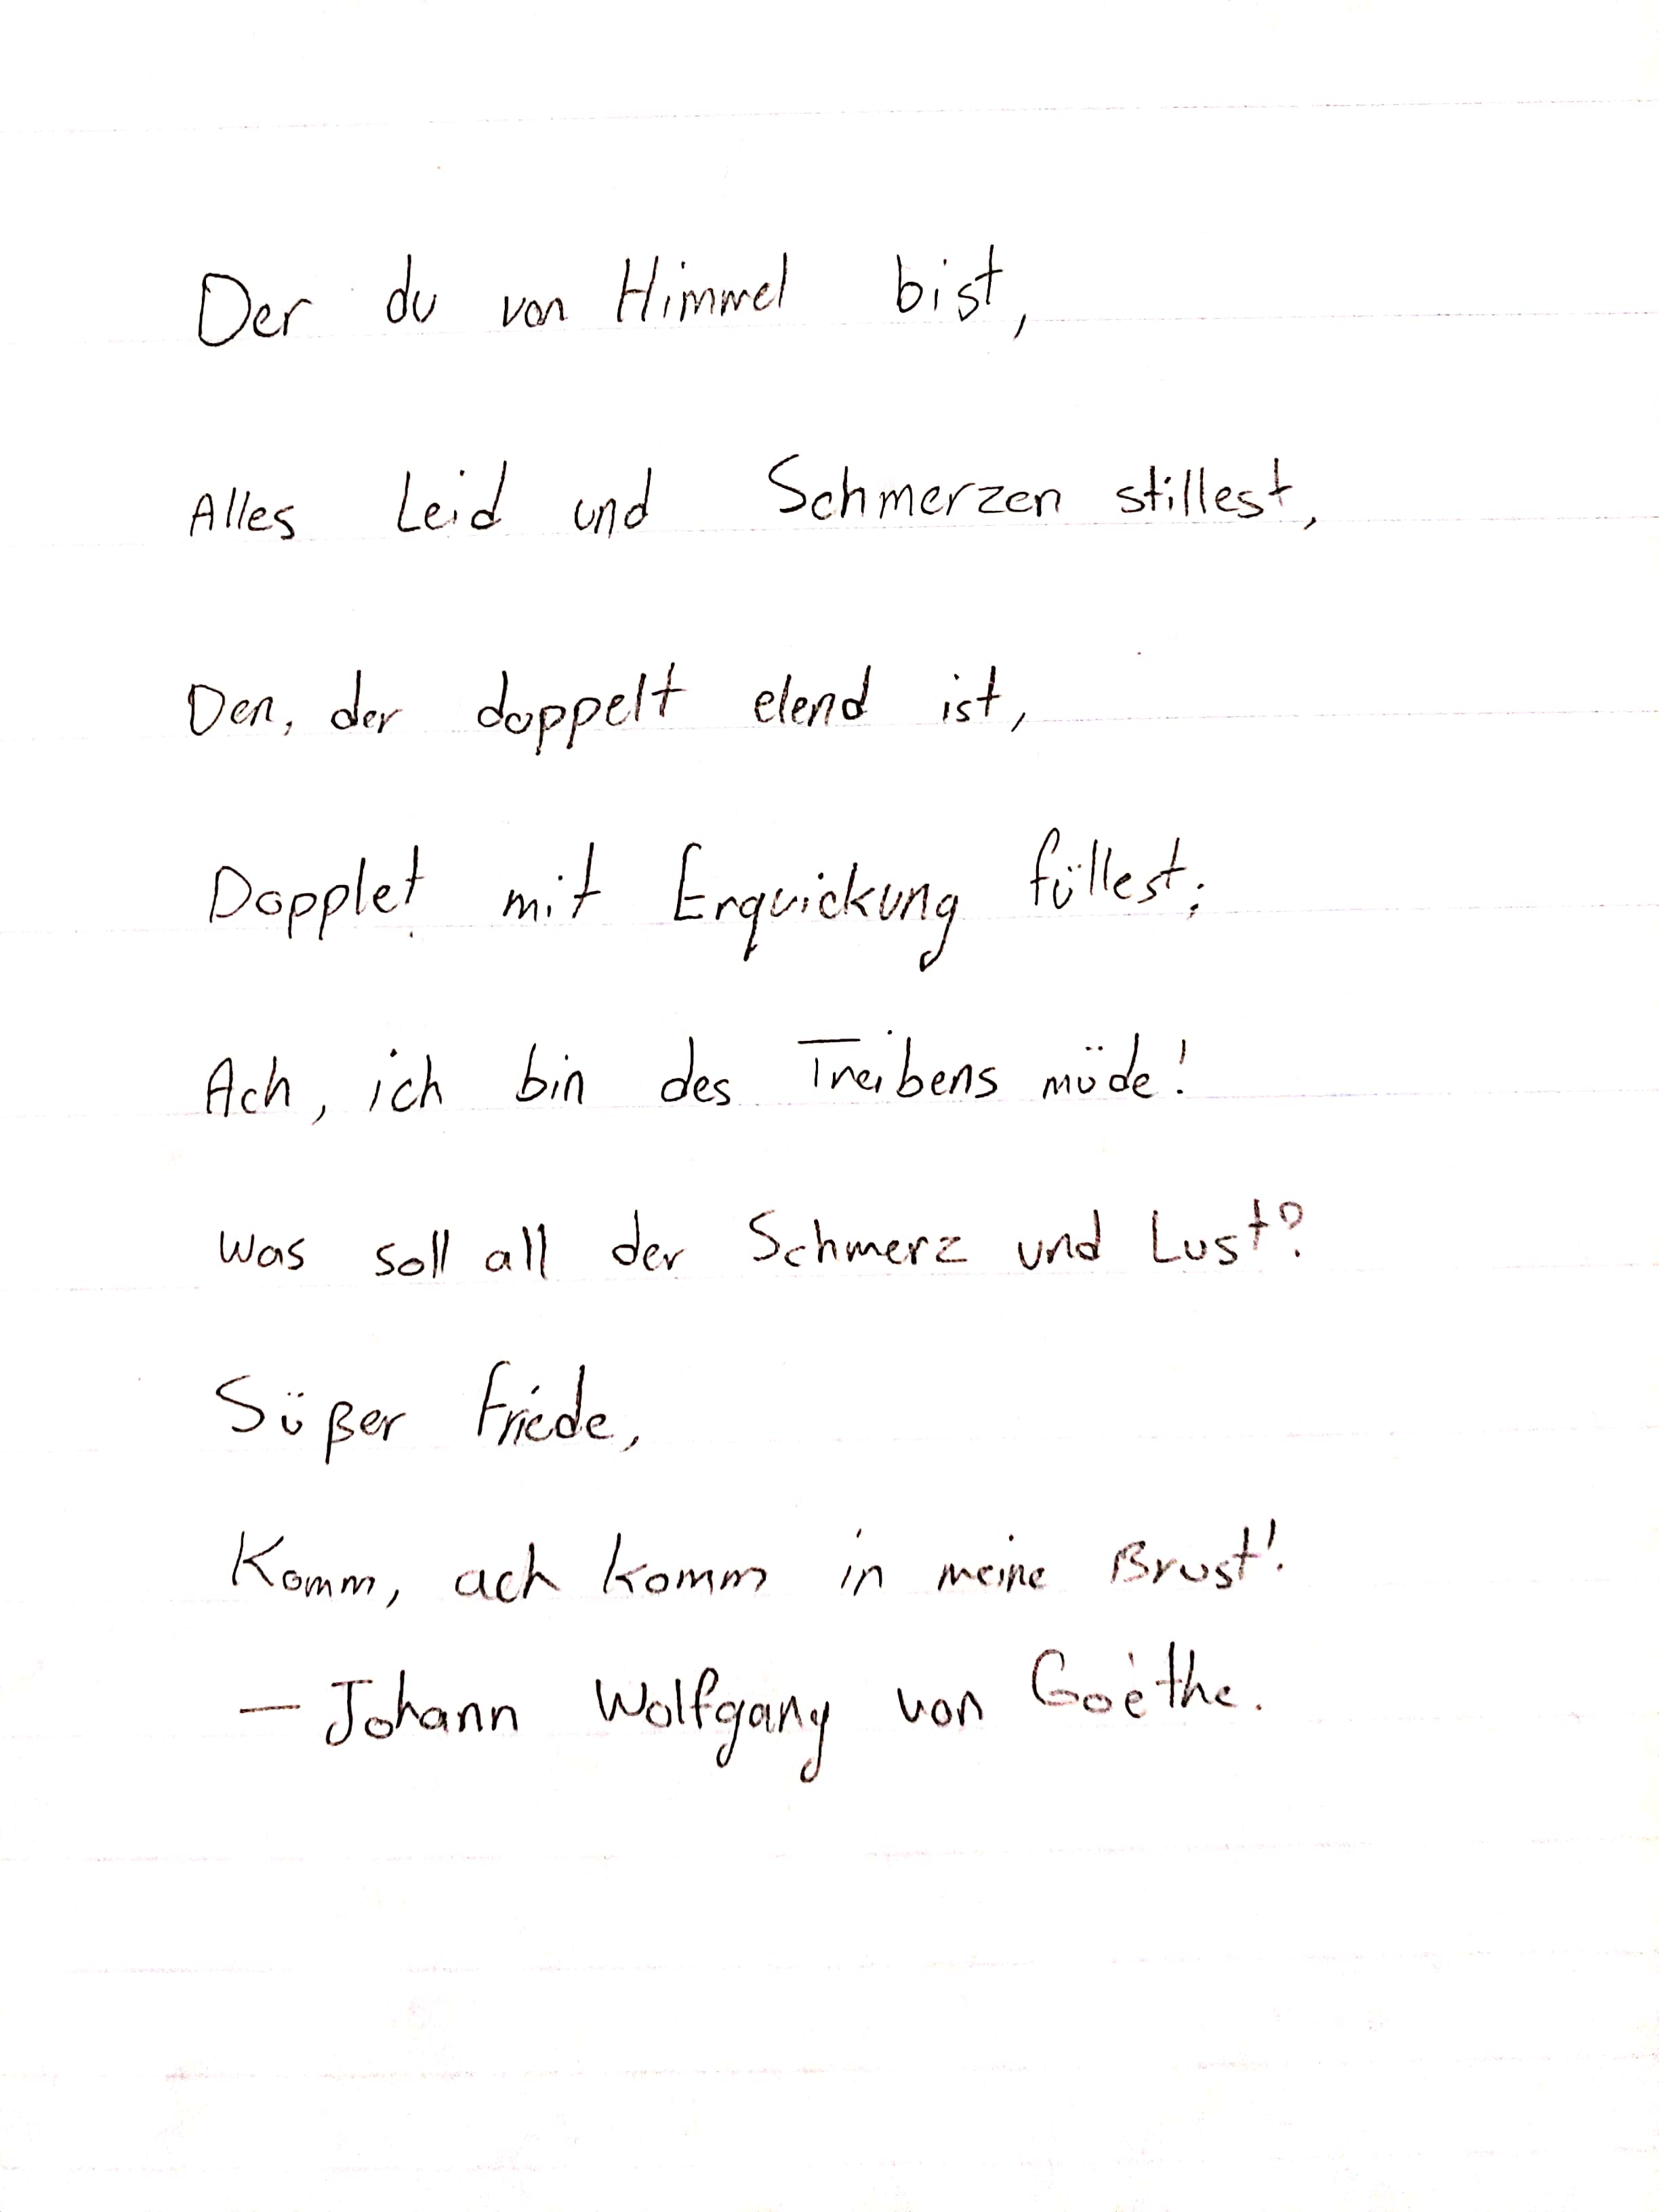 Der du von Himmel bist,
Alles Leid und Schmerzen stillest,
Den, der doppelt elend ist,
Dopplet mit Erquickung füllest;
Ach, ich bin des Treibens müde!
Was soll all der Schmerz und Lust?
Süßer Friede,
Komm, ach komm in meine Brust!
— Johann Wolfgang von Goethe.